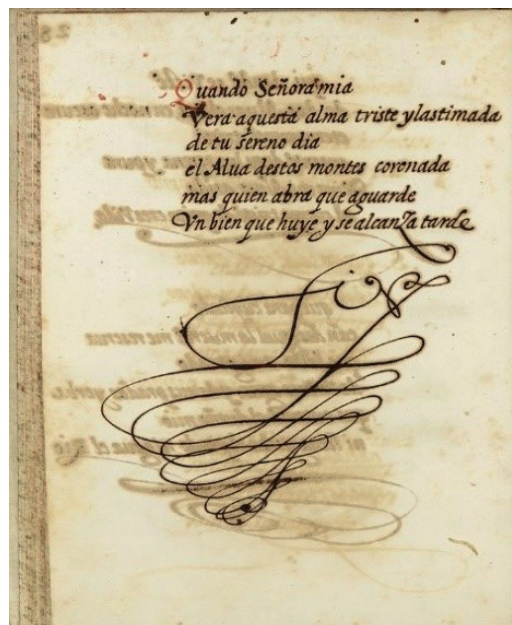 Quando Señora mia
Vera aquesta alma triste y lastimada
de tu sereno dia
el Alua destos montes coronada
mas quien abra que aguarde
Vn bien que huye y se alcanza tarde